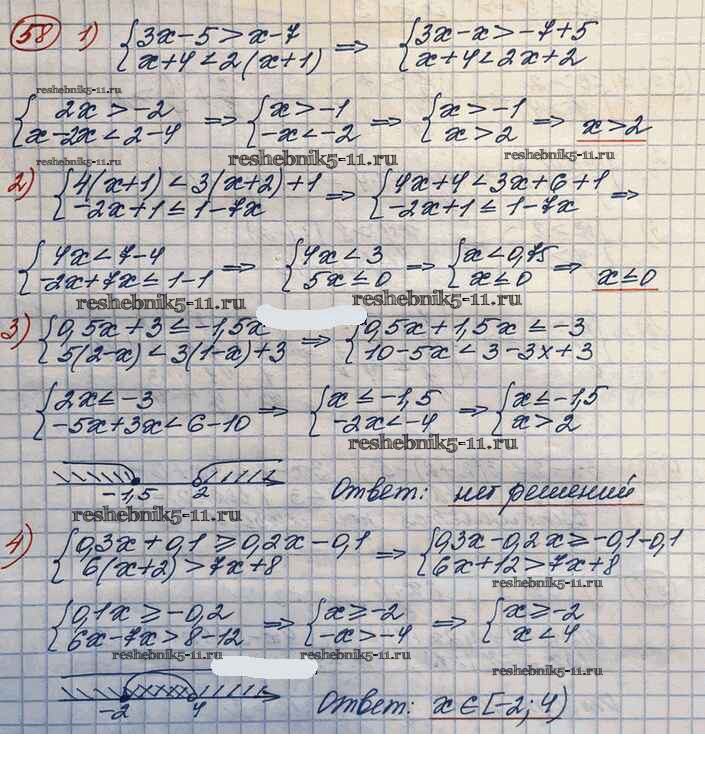 58 1) {3x-5>x-7 => {3x-x>-7+5
x+4<2(x+1) x+4<2x+2
reshebnik5-11.ru
{2x>-2 => {x>-1 => {x>-1 => x>2
x-2x<2-4 -x<-2 x>2
reshebnik5-11.ru reshebnik5-11.ru reshebnik5-11.ru
2) {4(x+1)<3(x+2)+1 => {4x+4<3x+6+1 =>
-2x+1≤1-7x -2x+1≤1-7x
{4x<7-4 => {4x<3 => {x<0,75 => x≤0
-2x+7x≤1-1 5x≤0 x≤0
reshebnik5-11.ru reshebnik5-11.ru
3) {0,5x+3≤-1,5x => {0,5x+1,5x≤-3
5(2-x)<3(1-x)+3 10-5x<3-3x+3
{2x≤-3 => {x≤-1,5 => {x≤-1,5
-5x+3x<6-10 -2x<-4 x>2
reshebnik5-11.ru
-1,5 2 Ответ: нет решений
reshebnik5-11.ru
4) {0,3x+0,1≥0,2x-0,1 => {0,3x-0,2x≥-0,1-0,1
6(x+2)>7x+8 6x+12>7x+8
reshebnik5-11.ru
{0,1x≥-0,2 => {x≥-2 => {x≥-2
6x-7x>8-12 -x>-4 x<4
reshebnik5-11.ru reshebnik5-11.ru
reshebnik5-11.ru
-2 4 Ответ: x∈[-2;4)